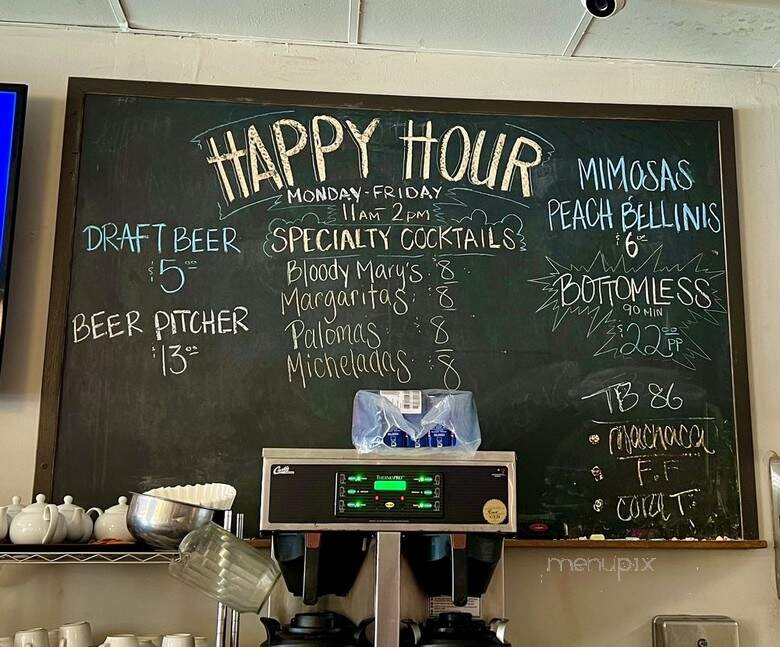 HAPPY HOUR
MONDAY-FRIDAY
11AM 2PM
DRAFT BEER
$5.00
BEER PITCHER
$13.00
SPECIALTY COCKTAILS
Bloody Mary's $8
Margaritas $8
Palomas $8
Micheladas $8
MIMOSAS
PEACH BELLINIS
$6.00
BOTTOMLESS
90 MIN
$22.00 PP
TB 86
machaca
F.F
Curtis
THERMOPRO
menupix